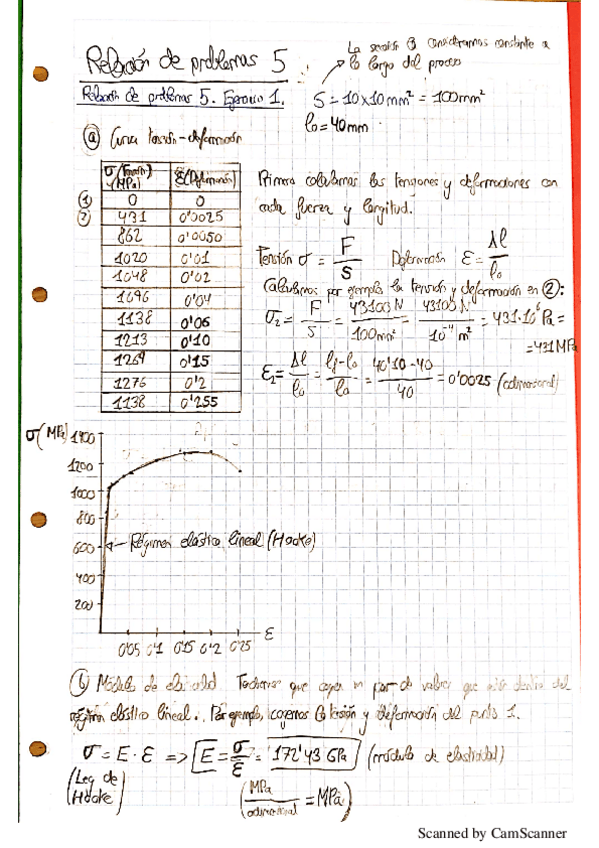 Relación de problemas 5
La sección la consideramos constante a
lo largo del proceso
Relación de problemas 5. Ejercicio 1.
S = 10x10mm² = 100mm²
l₀ = 40mm
ⓐ Curva tensión-deformación
σ (Tensión) (MPa) ε (Deformación)
① 0 0
② 431 0'0025
862 0'0050
1020 0'01
1048 0'02
1096 0'04
1138 0'06
1213 0'10
1264 0'15
1276 0'2
1138 0'255
Primero calculamos las tensiones y deformaciones con
cada fuerza y longitud.
Tensión σ = F/S Deformación ε = Δl/l₀
Calculamos por ejemplo la tensión y deformación en ②:
σ₂ = F/S = 43100 N/100mm² = 43100 N/10⁻⁴ m² = 431·10⁶ Pa =
= 431 MPa
ε₂ = Δl/l₀ = (lf-l₀)/l₀ = (40'10-40)/40 = 0'0025 (adimensional)
σ (MPa) 1400
1200
1000
800
600 ← Régimen elástico lineal (Hooke)
400
200
ε
0'05 0'1 0'15 0'2 0'25
ⓑ Módulo de elasticidad Tenemos que coger un par de valores que estén dentro del
régimen elástico lineal. Por ejemplo, cogemos la tensión y deformación del punto 1.
σ = E · ε => E = σ/ε = 172'43 GPa (módulo de elasticidad)
(Ley de Hooke)
(MPa/adimensional = MPa)
Scanned by CamScanner